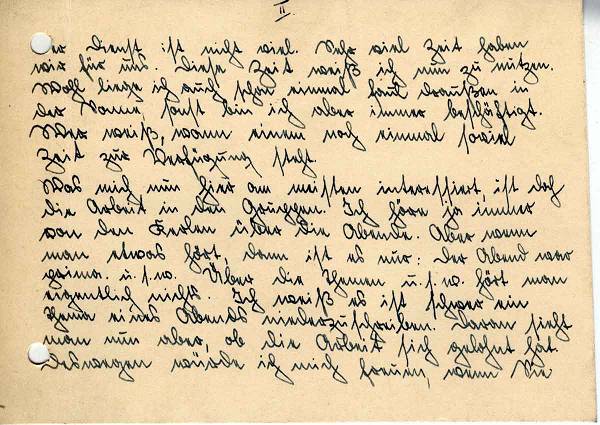 II.
Der Dienst ist nicht viel. Sehr viel Zeit haben
wir für uns. Diese Zeit weiß ich nun zu nützen.
Wohl liege ich auch schon einmal faul draußen in
der Sonne, sonst bin ich aber immer beschäftigt.
Wer weiß, wann einem noch einmal soviel
Zeit zur Verfügung steht.
Was mich nun hier am meisten interessiert, ist doch
die Arbeit in den Gruppen. Ich höre ja immer
von den Kerlen über die Abende. Aber wenn
man etwas hört, dann ist es nur: der Abend war
prima. u.s.w. Über die Themen u.s.w. hört man
eigentlich nichts. Ich weiß es ist schwer ein
Thema eines Abends niederzuschreiben. Daran sieht
man nun aber, ob die Arbeit sich gelohnt hat.
Deswegen würde ich mich freuen, wenn Sie